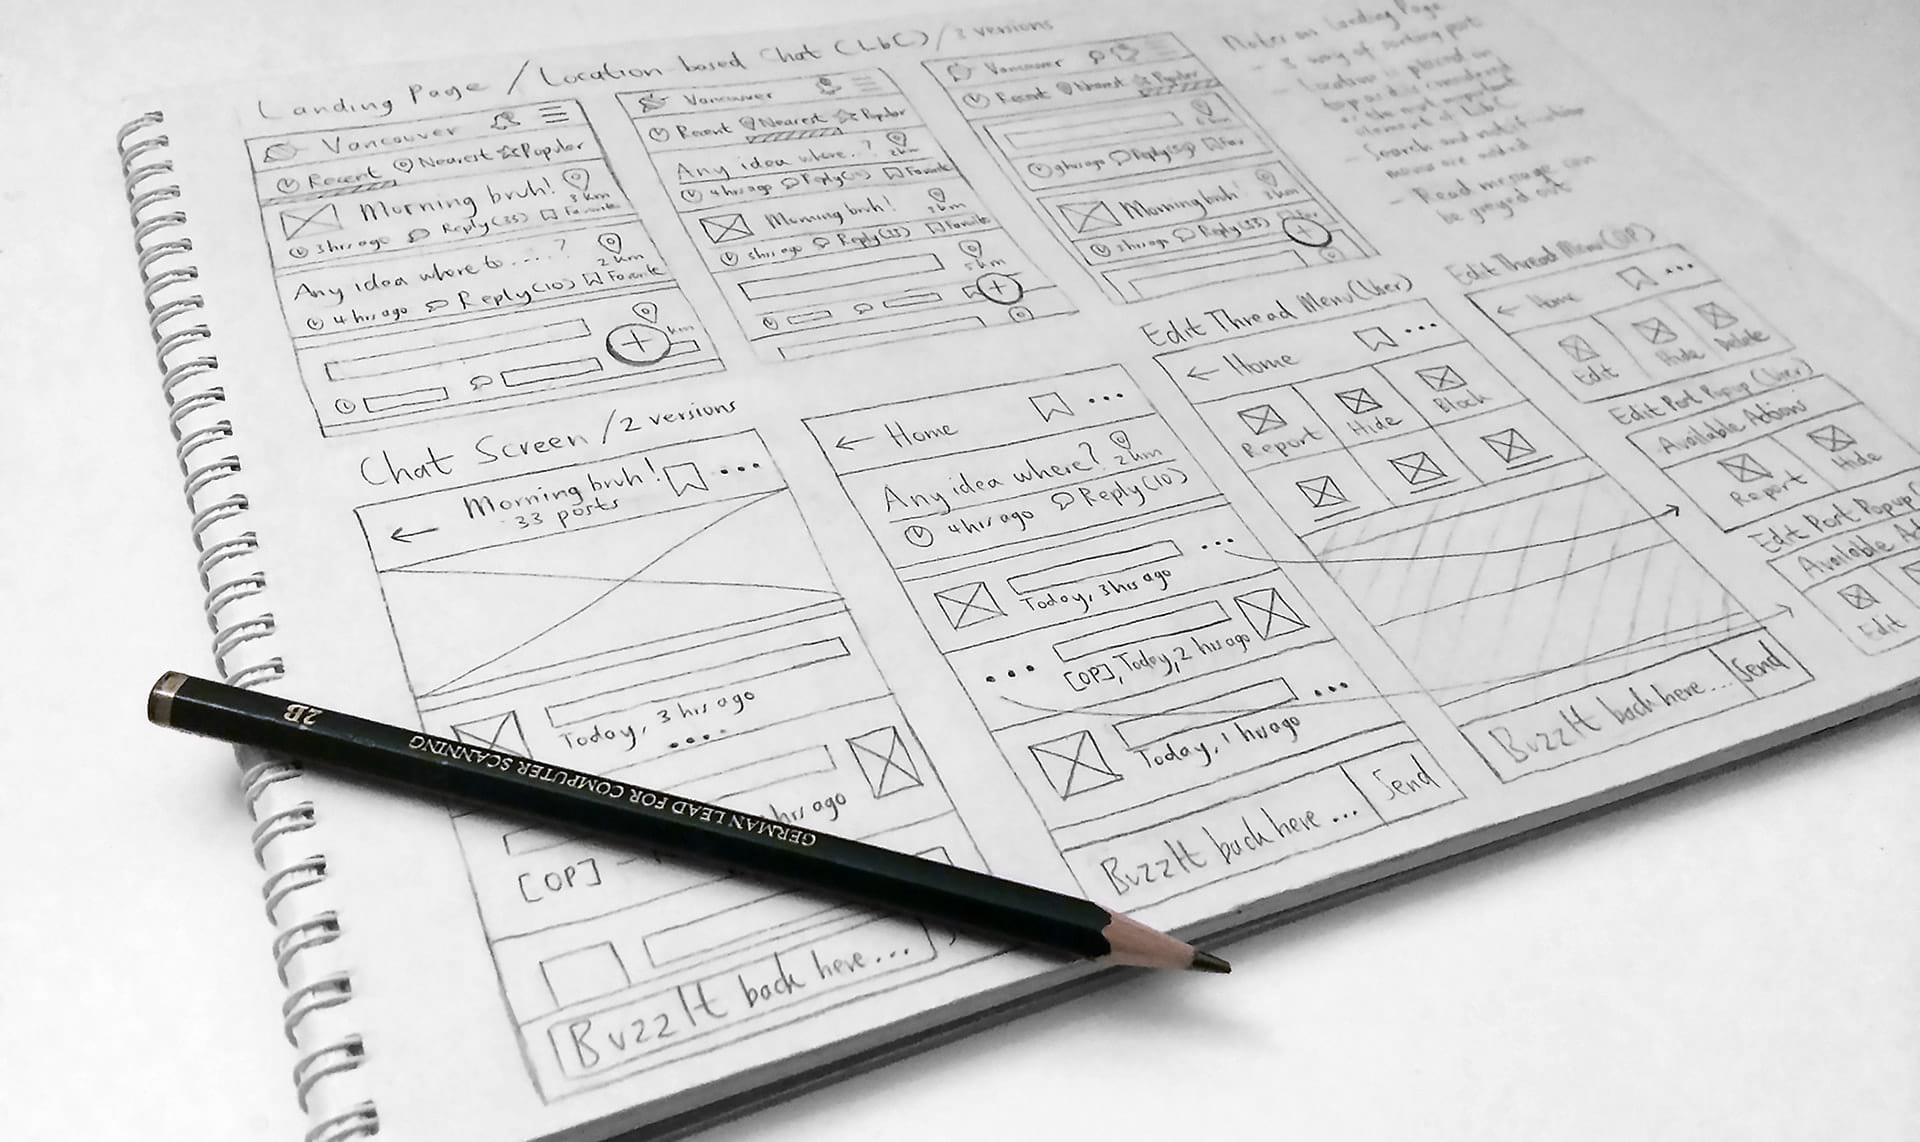 Landing Page / Location-based Chat (LbC) / 3 versions
Vancouver
Recent Nearest Popular
Morning bruh!
3 km
3 hrs ago Reply (35) Favorite
Any idea where to.....?
2 km
4 hrs ago Reply (10) Favorite
km
Vancouver
Recent Nearest Popular
Any idea where..?
2 km
4 hrs ago Reply (10) Favorite
Morning bruh!
3 km
3 hrs ago Reply (35) Favorite
5 km
Vancouver
Recent Nearest Popular
Morning bruh!
3 km
3 hrs ago Reply (35)
Notes on Landing Page
- 3 way of sorting post
- Location is placed on
element of LbC
- Search and notification
- Read message can
be greyed out
Chat Screen / 2 versions
Morning bruh!
33 posts
Today, 3 hrs ago
hrs ago
[OP]
BuzzIt back here...
Home
Any idea where?
2 km
4 hrs ago Reply (10)
Today, 3 hrs ago
[OP], Today, 2 hrs ago
Today, 1 hrs ago
BuzzIt back here...
Send
Edit Thread Menu (User)
Home
Report Hide Block
BuzzIt back here...
Send
Edit Thread Menu (OP)
Home
Edit Hide Delete
Edit Port Popup (User)
Available Actions
Report Hide
Edit Port Popup (
Available A
Edit
2B
GERMAN LEAD FOR COMPUTER SCANNING